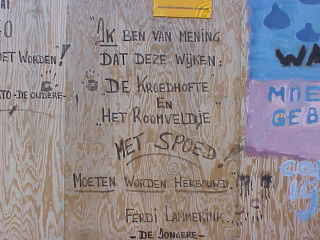 OFT WORDEN!
TO - DE OUDERE-
"IK BEN VAN MENING
DAT DEZE WIJKEN:
DE KROEDHOFTE
EN
"HET ROOMVELDJE"
MET SPOED
MOETEN WORDEN HERBOUWD.
FERDI LAMMERINK.
- DE JONGERE -
WA
MOE
GEB